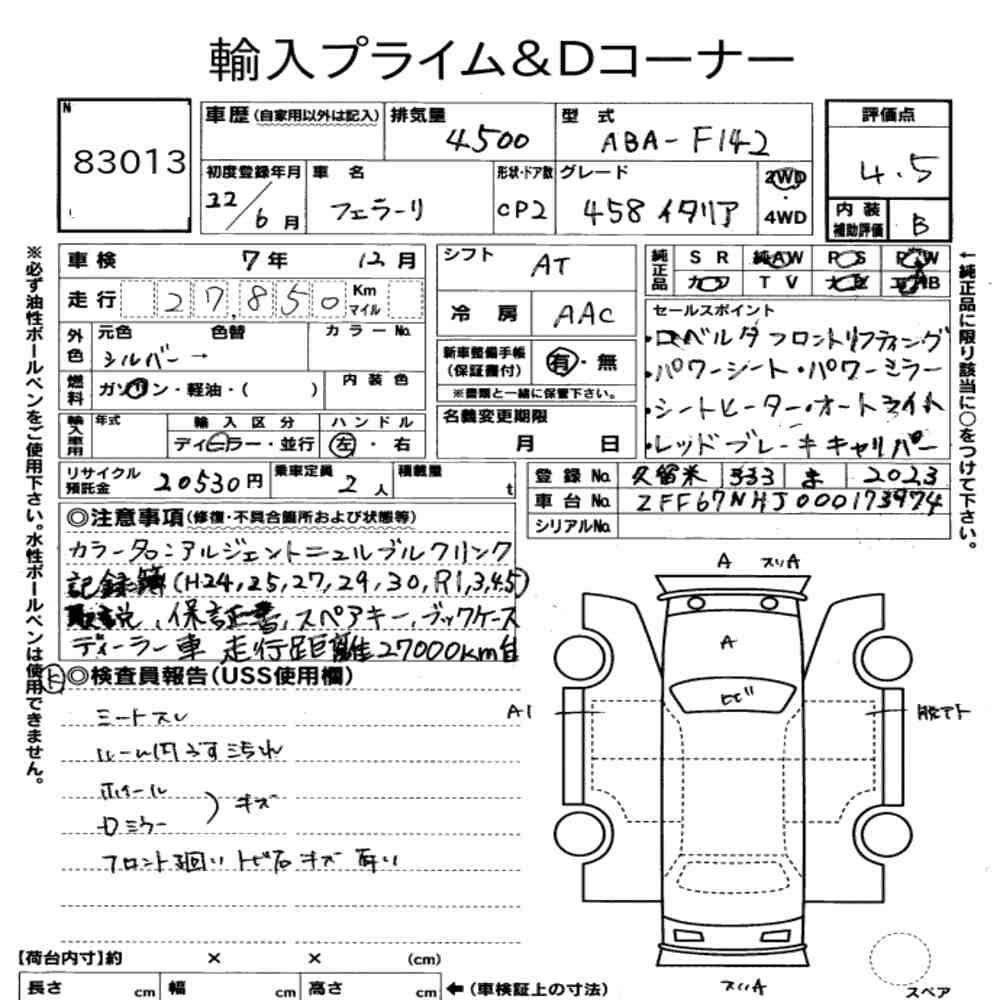 輸入プライム&Dコーナー
N
83013
車歴 (自家用以外は記入) 排気量 4500 型式 ABA-F142
初度登録年月 22/6月 車名 フェラーリ 形状・ドア数 CP2 グレード 458 イタリア 2WD・4WD
評価点
4.5
内装補助評価 B
車検 7年 12月
走行 27,850 Km マイル
外色 元色 シルバー → 色替 カラーNo.
燃料 ガソリン・軽油・( ) 内装色
輸入車用 年式 輸入区分 ディーラー・並行 ハンドル 左・右
シフト AT
冷房 AAC
新車整備手帳(保証書付) 有・無
※書類と一緒に保管下さい。
名義変更期限
月 日
純正品 SR 純AW PS PW
カワ TV ナビ エアB
セールスポイント
・ロベルタフロントリフティング
・パワーシート・パワーミラー
・シートヒーター・オートライト
・レッドブレーキキャリパー
リサイクル預託金 20530円 乗車定員 2人 積載量 t
登録No. 久留米 333 ま 2023
車台No. ZFF67NHJ000173974
シリアルNo.
◎注意事項(修復・不具合箇所および状態等)
カラーNo:アルジェントニュルブルクリンク
記録簿(H24,25,27,29,30,R1,3,4,5)
取説、保証書、スペアキー、ブックケース
ディーラー車 走行距離27000km台
◎検査員報告(USS使用欄)
シートスレ
ルーム内うす汚れ
ホイール
Dミラー ) キズ
フロント廻り トビ石キズ 有り
A スリA
A
ヒビ
A1
スリA
スペア
【荷台内寸】約 × × (cm)
長さ cm 幅 cm 高さ cm ←(車検証上の寸法)
※必ず油性ボールペンをご使用下さい。水性ボールペンは使用できません。
←純正品に限り該当に○をつけて下さい。